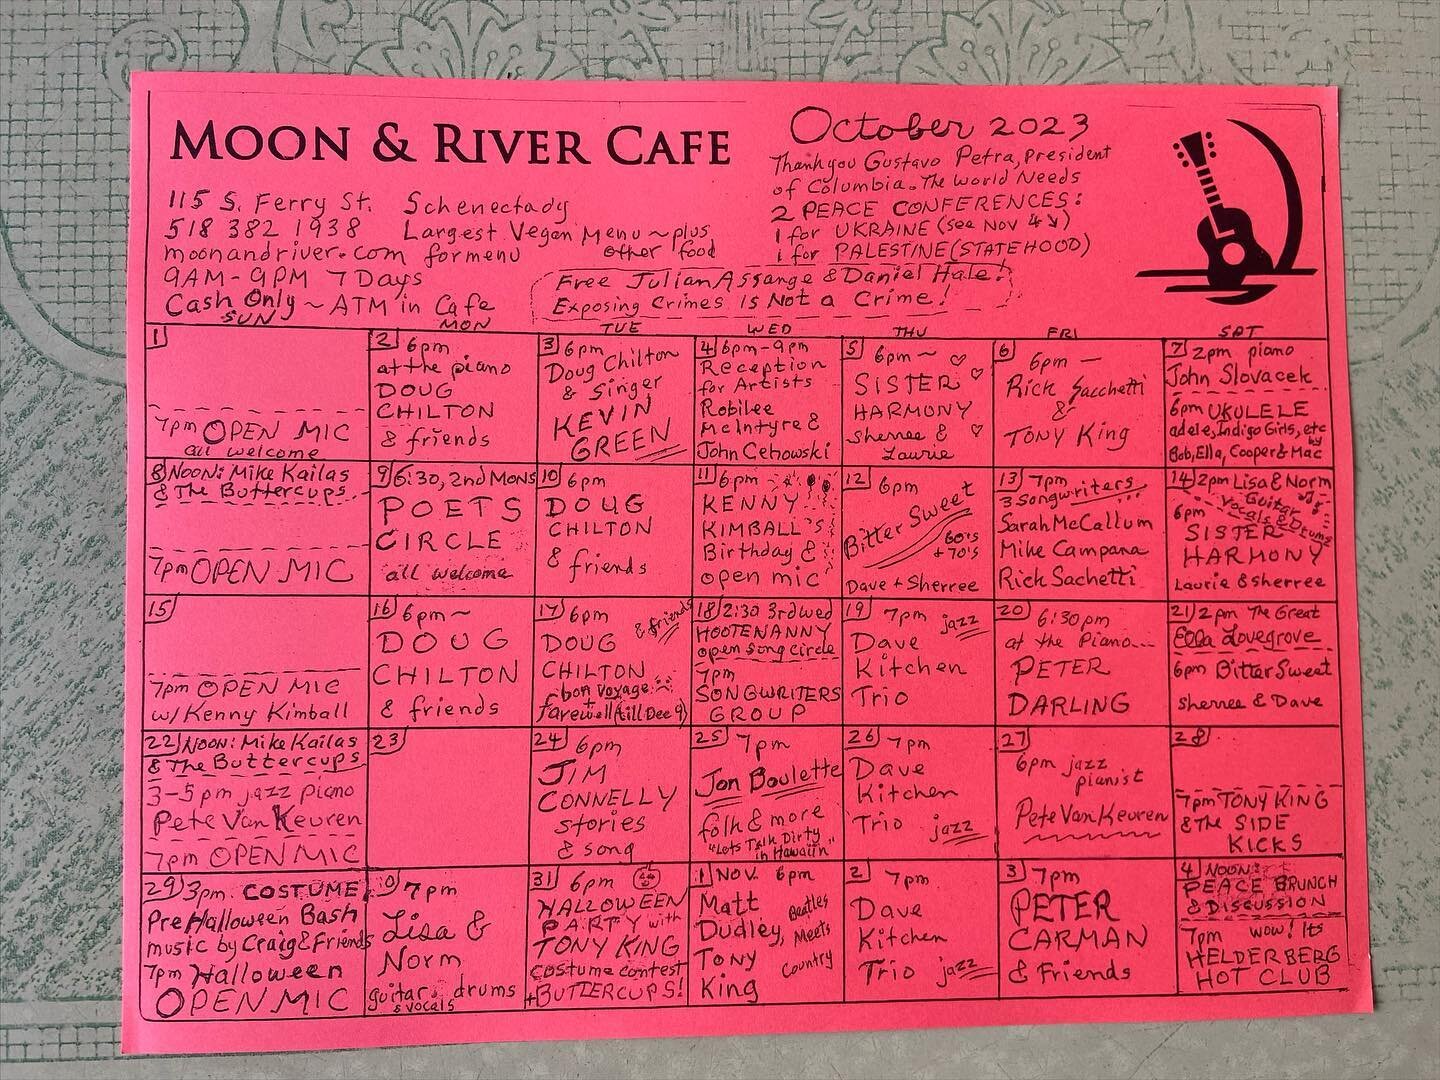 MOON & RIVER CAFE
October 2023
115 S. Ferry St. Schenectady
518 382 1938 Largest Vegan Menu ~ plus
moonandriver.com for menu other food
9AM-9PM 7 Days
Cash Only ~ ATM in Cafe
Thankyou Gustavo Petra, President
of Columbia. The World Needs
2 PEACE CONFERENCES:
1 for UKRAINE (see Nov 4↘)
1 for PALESTINE (STATEHOOD)
Free Julian Assange & Daniel Hale!
Exposing Crimes is Not a Crime!
SUN MON TUE WED THU FRI SAT
1
7pm OPEN MIC
all welcome
2 6pm
at the piano
DOUG
CHILTON
& friends
3 6pm
Doug Chilton
& Singer
KEVIN
GREEN
4 6pm-9pm
Reception
for Artists
Robilee
McIntyre &
John Cehowski
5 6pm ~
SISTER
HARMONY
Sherree &
Laurie
6 6pm —
Rick Sacchetti
&
TONY King
7 2pm piano
John Slovacek
6pm UKULELE
adele, Indigo Girls, etc
by
Bob, Ella, Cooper & Mac
8 NOON: Mike Kailas
& The Buttercups
7pm OPEN MIC
9 6:30, 2nd Mons
POETS
CIRCLE
all welcome
10 6pm
DOUG
CHILTON
& friends
11 6pm
KENNY
KIMBALL'S
Birthday &
open mic
12 6pm
Bitter Sweet
60's
+ 70's
Dave + Sherree
13 7pm
3 songwriters...
Sarah McCallum
Mike Campana
Rick Sachetti
14 2pm Lisa & Norm
Guitar
Vocals & Drums
6pm
SISTER
HARMONY
Laurie & Sherree
15
7pm OPEN MIC
w/ Kenny Kimball
16 6pm ~
DOUG
CHILTON
& friends
17 6pm
DOUG & friends
CHILTON
bon voyage
+
farewell (till Dec 9)
18 2:30 3rd Wed
HOOTENANNY
open song circle
7pm
SONGWRITERS
GROUP
19 7pm jazz
Dave
Kitchen
Trio
20 6:30pm
at the Piano...
PETER
DARLING
21 2pm The Great
Ella Lovegrove
6pm Bitter Sweet
Sherree & Dave
22 NOON: Mike Kailas
& The Buttercups
3-5pm jazz piano
Pete Van Keuren
7pm OPEN MIC
23
24 6pm
JIM
CONNELLY
stories
& song
25 7pm
Jon Boulette
folk & more
"Lets Talk Dirty
in Hawaiin"
26 7pm
Dave
Kitchen
Trio jazz
27
6pm jazz
pianist
Pete Van Keuren
28
7pm TONY KING
& THE SIDE
KICKS
29 3pm. COSTUME
Pre Halloween Bash
music by Craig & Friends
7pm Halloween
OPEN MIC
30 7pm
Lisa &
Norm
guitar, drums
& vocals
31 6pm
HALLOWEEN
PARTY with
TONY KING
costume contest
+ BUTTERCUPS!
1 NOV. 6pm
Matt
Dudley,
Tony
King
Beatles
Meets
Country
2 7pm
Dave
Kitchen
Trio jazz
3 7pm
PETER
CARMAN
& Friends
4 NOON:
PEACE BRUNCH
& DISCUSSION
7pm wow! Its
HELDERBERG
HOT CLUB